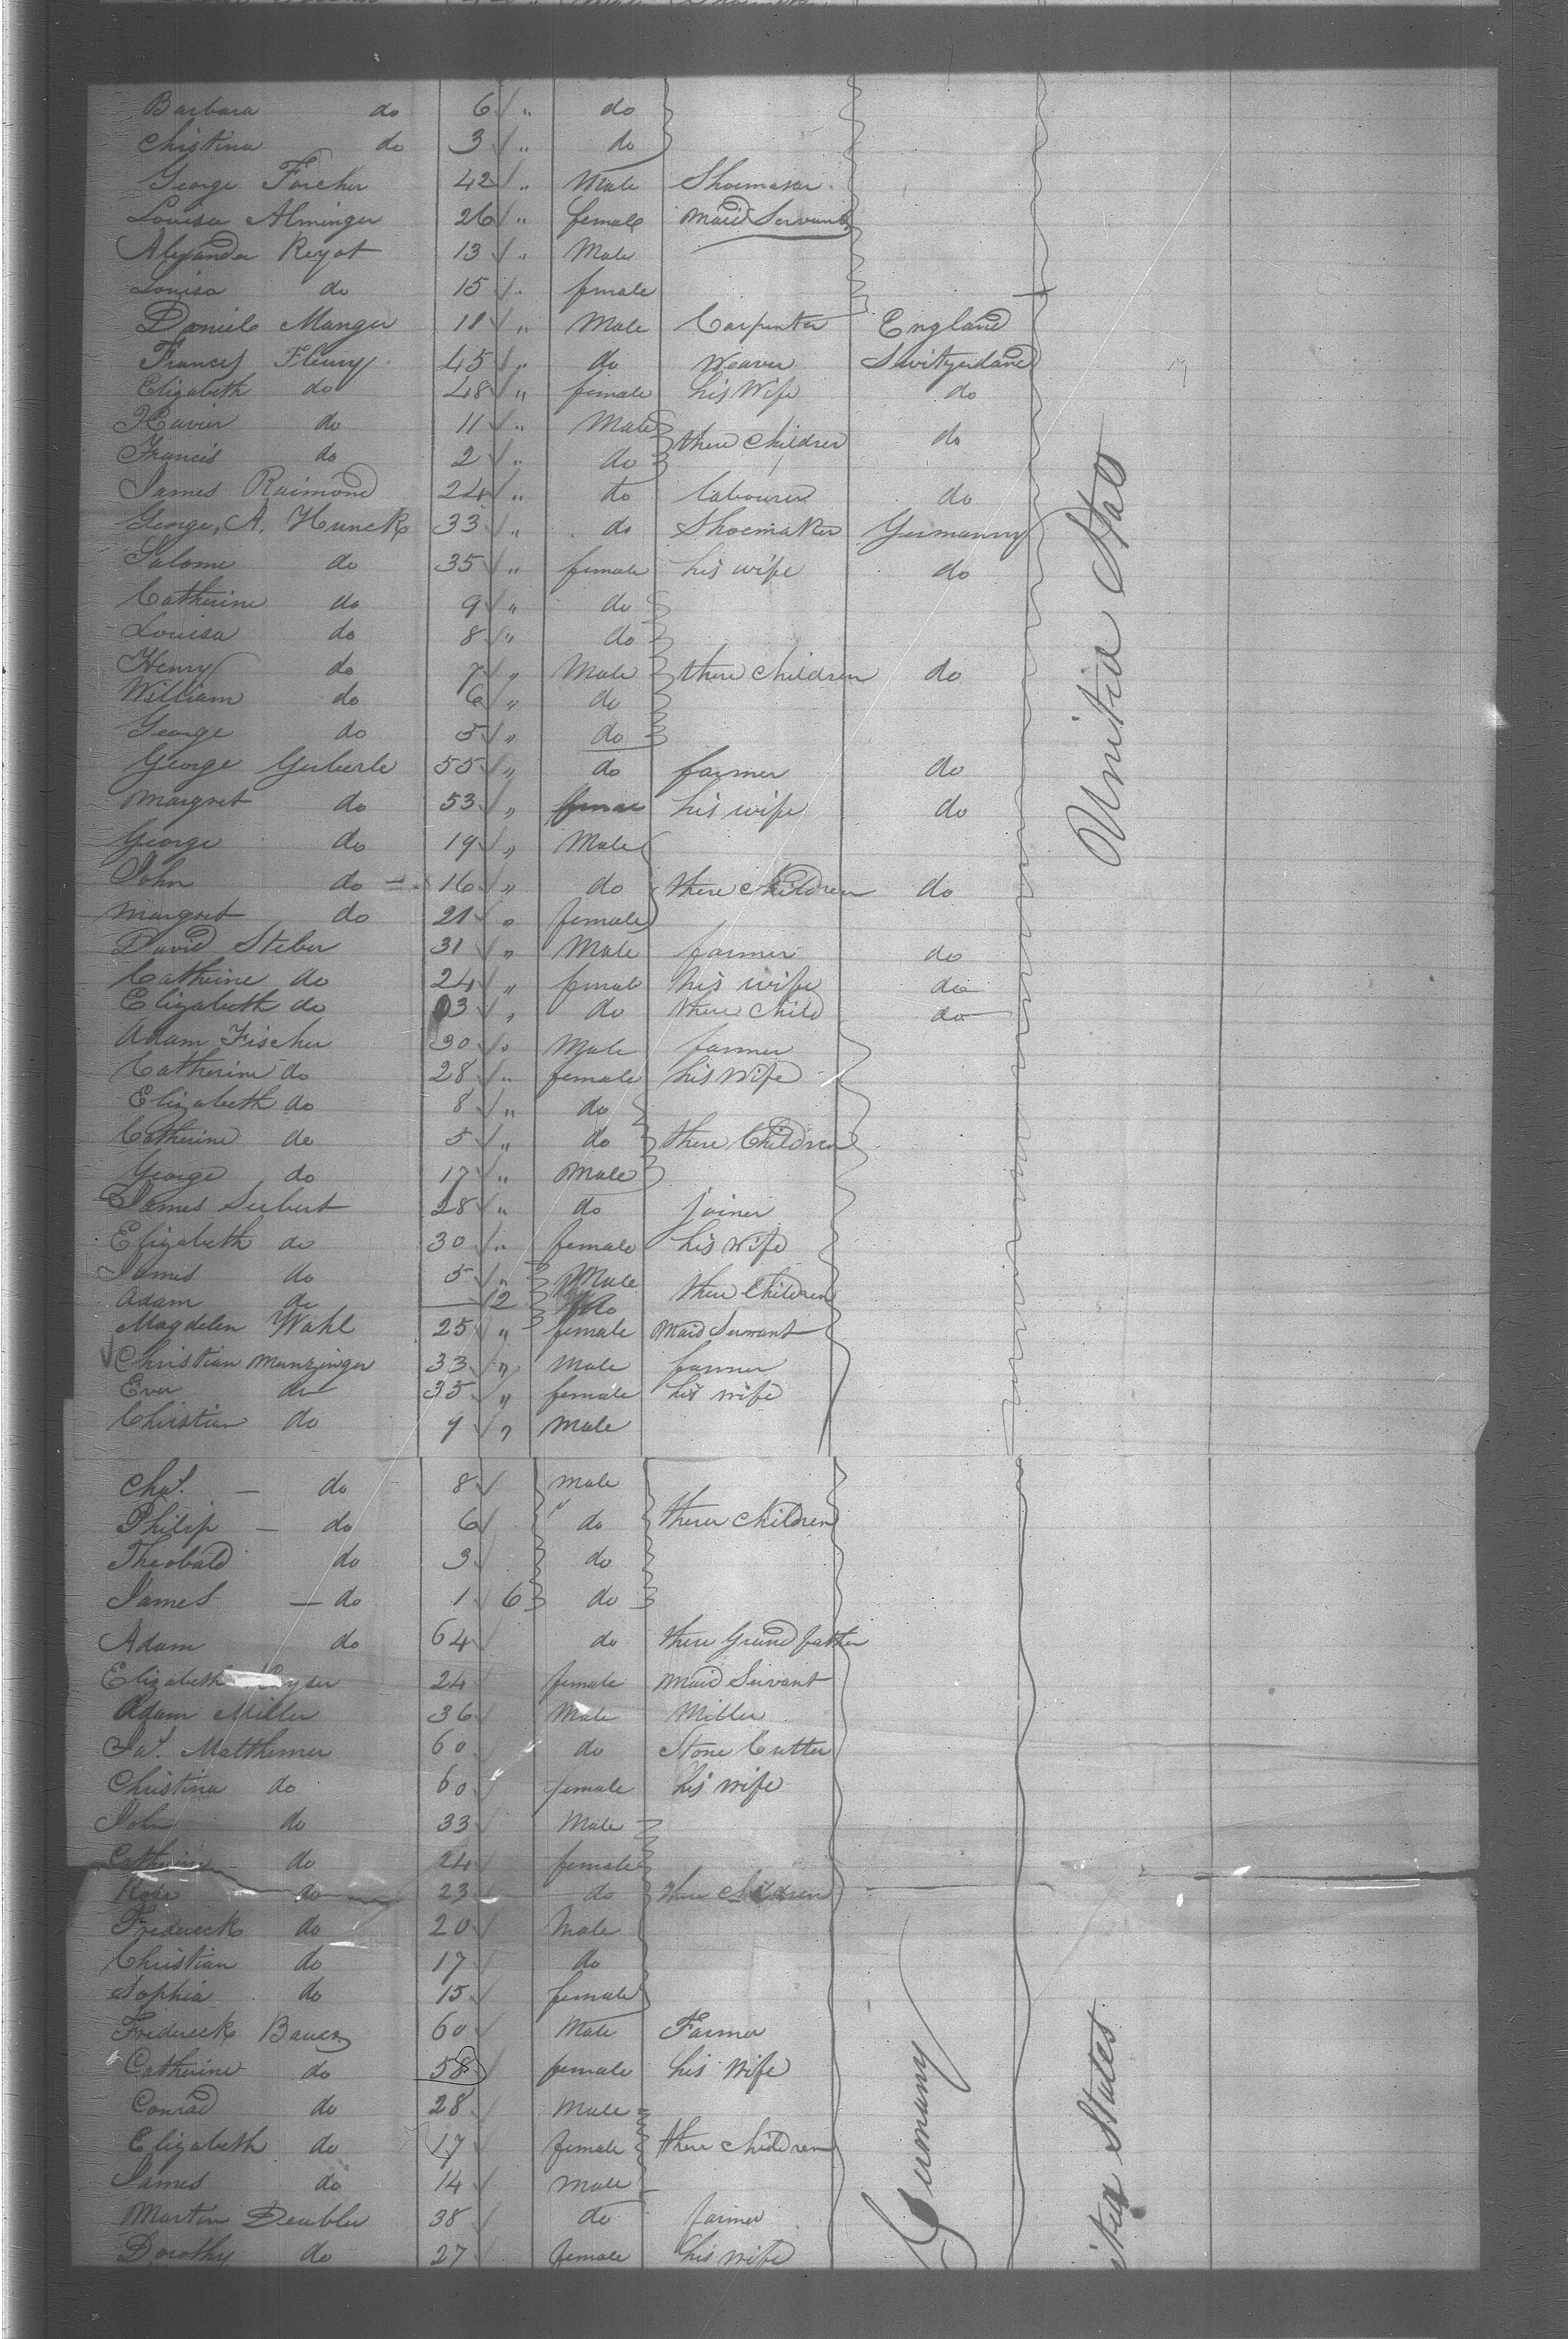 Barbara do 6 " do
Christina do 3 " do
George Forcher 42 " Male Shoemaker
Louisa Alminger 26 " female Maid Servant
Alexander Reyat 13 " Male
Louisa do 15 " female
Daniel Manger 18 " Male Carpenter England
Frances Fleury 45 " do Weaver Switzerland
Elizabeth do 48 " female his Wife do
Xavier do 11 " Male there Children do
Francis do 2 " do
James Raimond 24 " do labourer do
George, A. Hunck 33 " do Shoemaker Germanny
Salome do 35 " female his wife do
Catherine do 9 " do
Louisa do 8 " do
Henry do 7 " Male there Children do
William do 6 " do
George do 5 " do
George Gerberle 55 " do farmer do
Margret do 53 " his wife do
George do 19 " Male
John do 16 " do there Children do
Margret do 21 " female
David Steber 31 " Male farmer do
Cathrine do 24 " female his wife do
Elizabeth do 3 " do there Child do
Adam Fischer 30 " Male farmer
Catherine do 28 " female his Wife
Elizabeth do 8 " do
Catherine do 5 " do there Children
George do 17 " Male
James Seibert 28 " do joiner
Elizabeth do 30 " female his wife
James do 5 " Male there Children
Adam do — 2 do
Magdelen Wahl 25 " female Maid Servant
Christian Munzinger 33 " Male farmer
Ever do 35 " female his wife
Christian do 9 " Male
United Stats
Chas. — do 8 male
Philip — do 6 " do there Children
Theobald do 3 do
James — do 1 6 do
Adam do 64 do there Grand father
Elizabeth 24 female Maid Servant
Adam Miller 36 Male Miller
Jas. Matthemer 60 do Stone Cutter
Christina do 60 female his wife
John do 33 Male
Catherine do 24 female
Rosa do 23 do there Children
Fredereck do 20 Male
Christian do 17 do
Sophia do 15 female
Fredereck Bauer 60 Male Farmer
Catherine do 58 female his Wife
Conrad do 28 Male
Elizabeth do 17 female there Children
James do 14 Male
Martin Deubler 38 do farmer
Dorothy do 27 female his wife
Germany
ited States